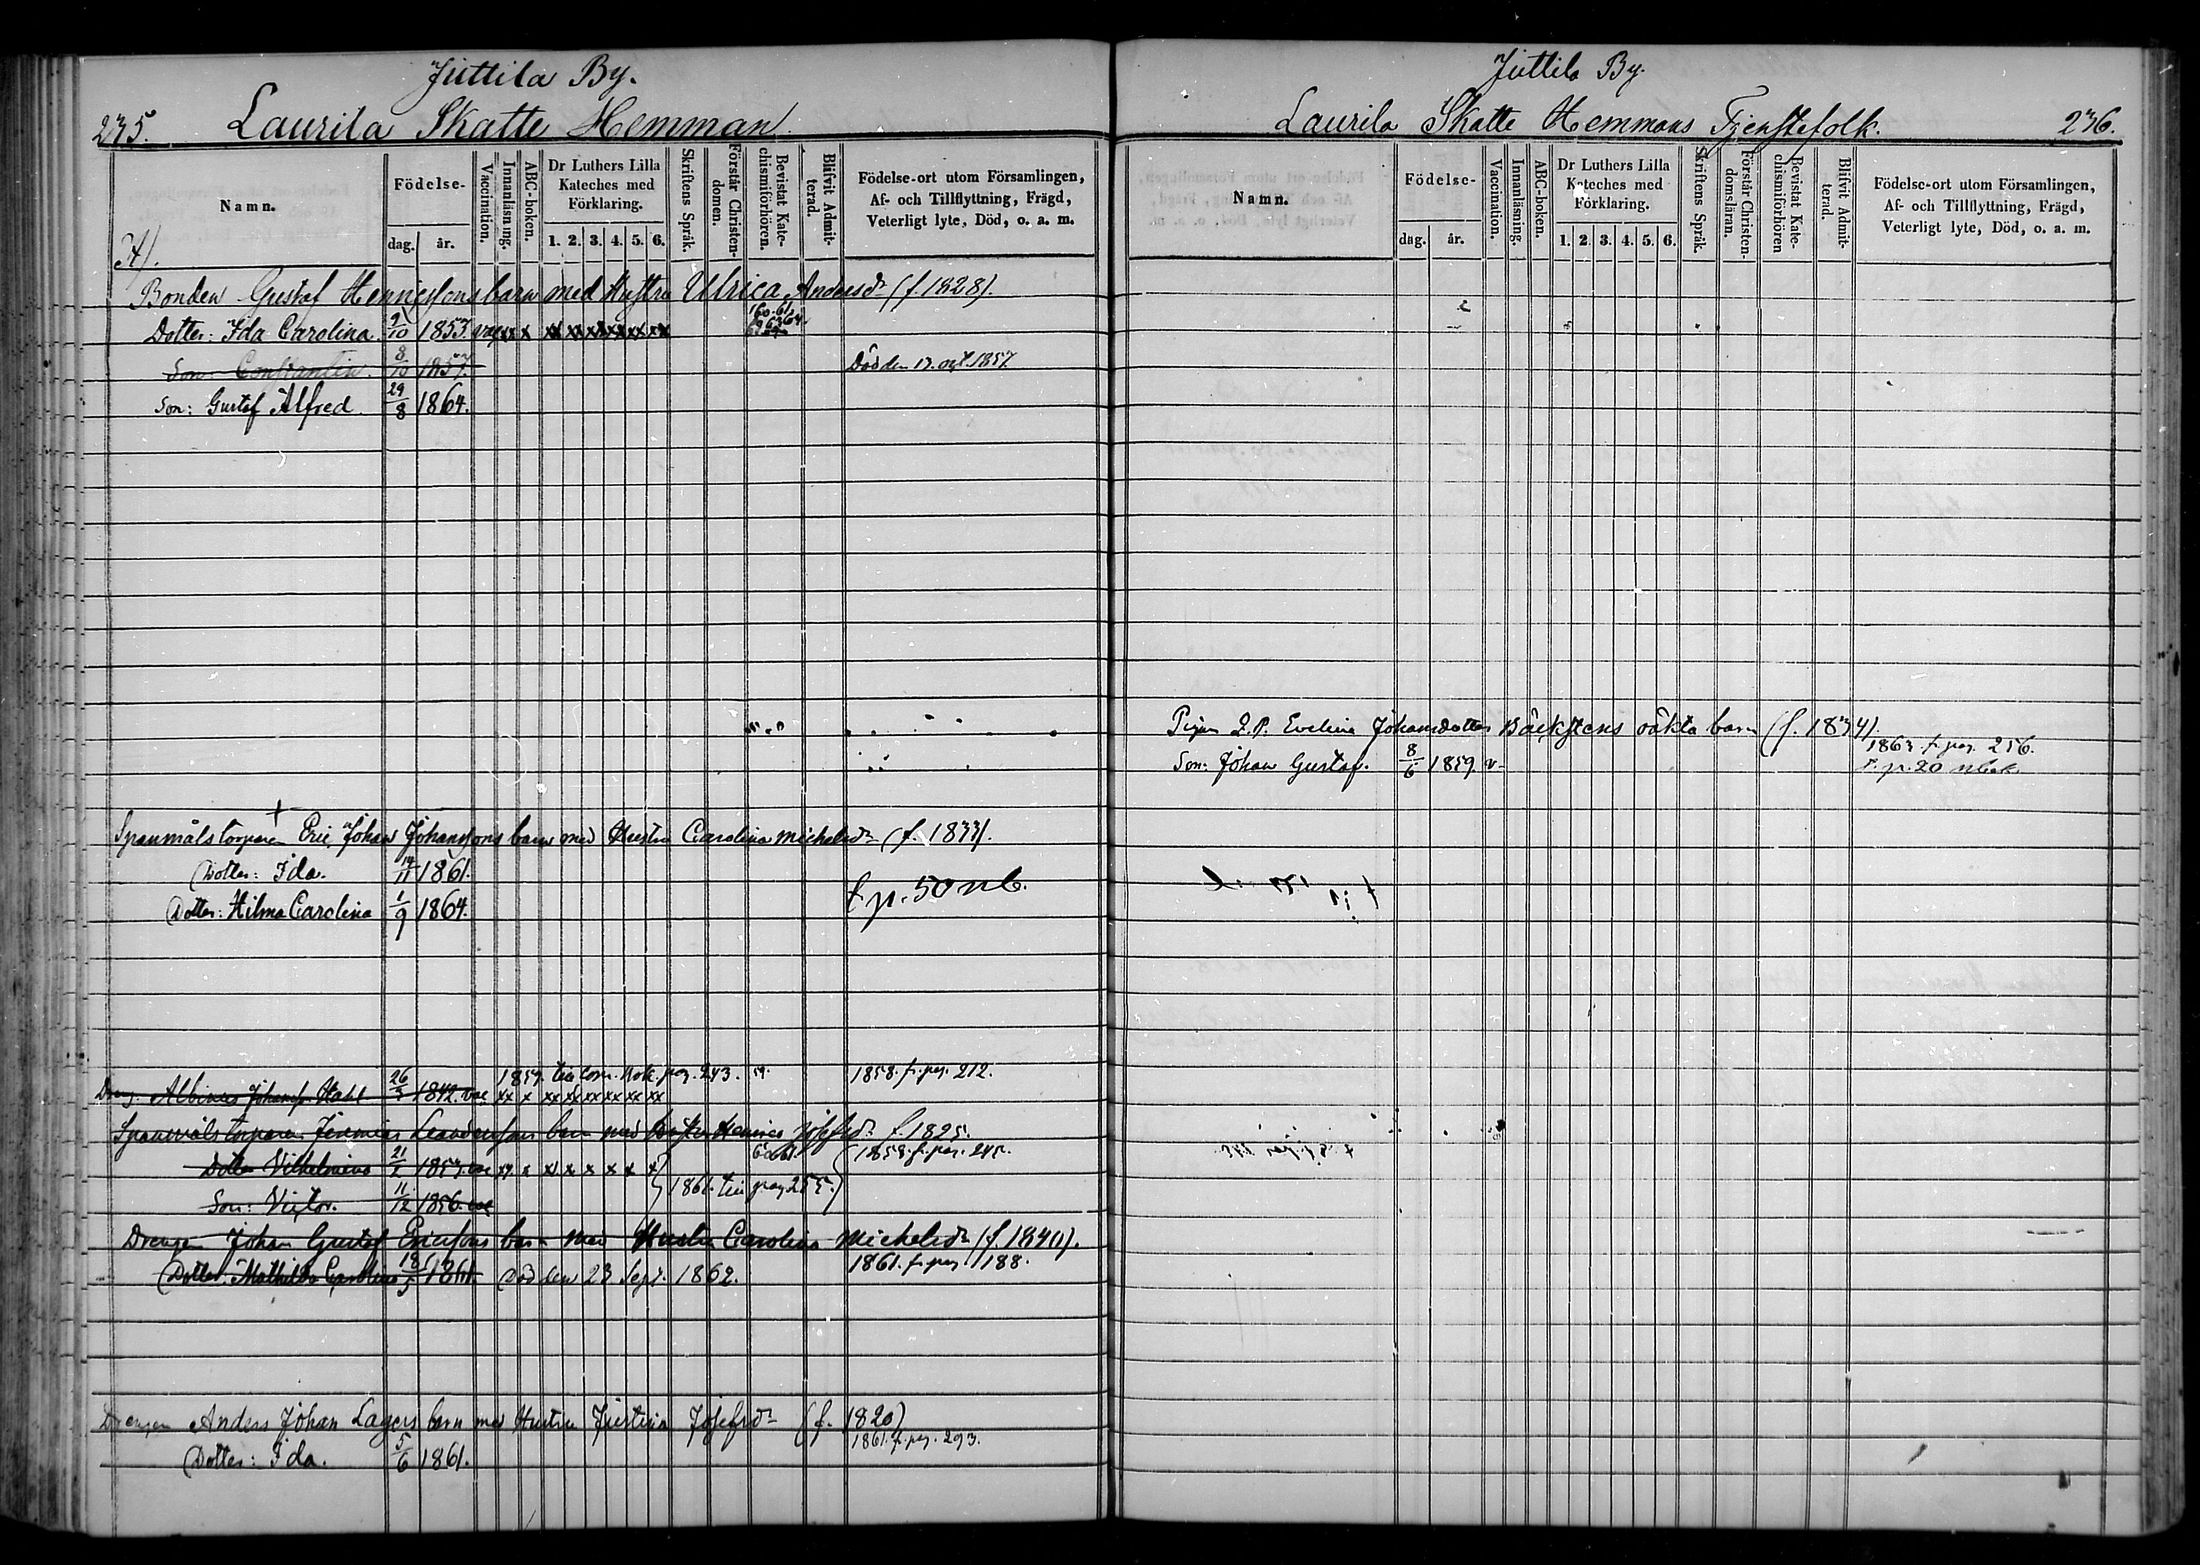 Juttila By.
235. Laurila Skatte Hemman.
Namn.
A).
Födelse-
dag. år.
Vaccination.
Innanläsning.
ABC-boken.
Dr Luthers Lilla
Kateches med
Förklaring.
1. 2. 3. 4. 5. 6.
Skriftens Språk.
Förstår Christen-
domen.
Bevistat Kate-
chismiförhören.
Blifvit Admit-
terad.
Födelse-ort utom Församlingen,
Af- och Tillflyttning, Frägd,
Veterligt lyte, Död, o. a. m.
Bonden Gustaf Hennessons barn med Hustru Ulrica Andersdr (f. 1828).
Dotter: Ida Carolina 9/10 1853. vac xx x xx xx xx xx xx xx 60. 61.
Son: Constantin. 8/10 1857. Död den 17. oct. 1857.
Son: Gustaf Alfred. 29/8 1864.
Spanmåls torparen Eric Johan Johanssons barn med Hustru Carolina Michelsdr (f. 1833).
Dotter: Ida. 14/11 1861.
Dotter: Hilma Carolina 1/9 1864.
t. p. 50 nb.
Dreng. Albinus Johanss. Hahl 26/3 1842. vac 1859. till Com. bok. pag. 243. 59. 1858. f. pag. 212.
xx x xx xx xx xx xx xx
Spanmåls torparen Jeremias Leandersons barn med Hustru Josefsdr f. 1825.
Dotter Vilhelmina 21/1 1853. vac xx x x x x x x x 60. 61. 1858. f. pag. 245.
Son: Victor. 11/12 1856. vac 1861. till pag 255.
Drengen Johan Gustaf Ericssons barn med Hustru Carolina Michelsdr (f. 1840).
Dotter: Mathilda Carolina 18/5 1861. Död den 23 Sept. 1862. 1861. f. pag 188.
Drengen Anders Johan Lagers barn med Hustru Justina Josefsdr (f. 1820)
Dotter: Ida. 5/6 1861. 1861. f. pag. 293.
Juttila By.
Laurila Skatte Hemmans Tjenstefolk. 236.
Namn.
Födelse-
dag. år.
Vaccination.
Innanläsning.
ABC-boken.
Dr Luthers Lilla
Kateches med
Förklaring.
1. 2. 3. 4. 5. 6.
Skriftens Språk.
Förstår Christen-
domsläran.
Bevistat Kate-
chismiförhören
Blifvit Admit-
terad.
Födelse-ort utom Församlingen,
Af- och Tillflyttning, Frägd,
Veterligt lyte, Död, o. a. m.
Pigan Q. P. Evelina Johansdotter Bäckstens oäkta barn (f. 1834).
1863 f. pag. 256.
Son: Johan Gustaf. 8/6 1859. v. t. p. 20 nbok